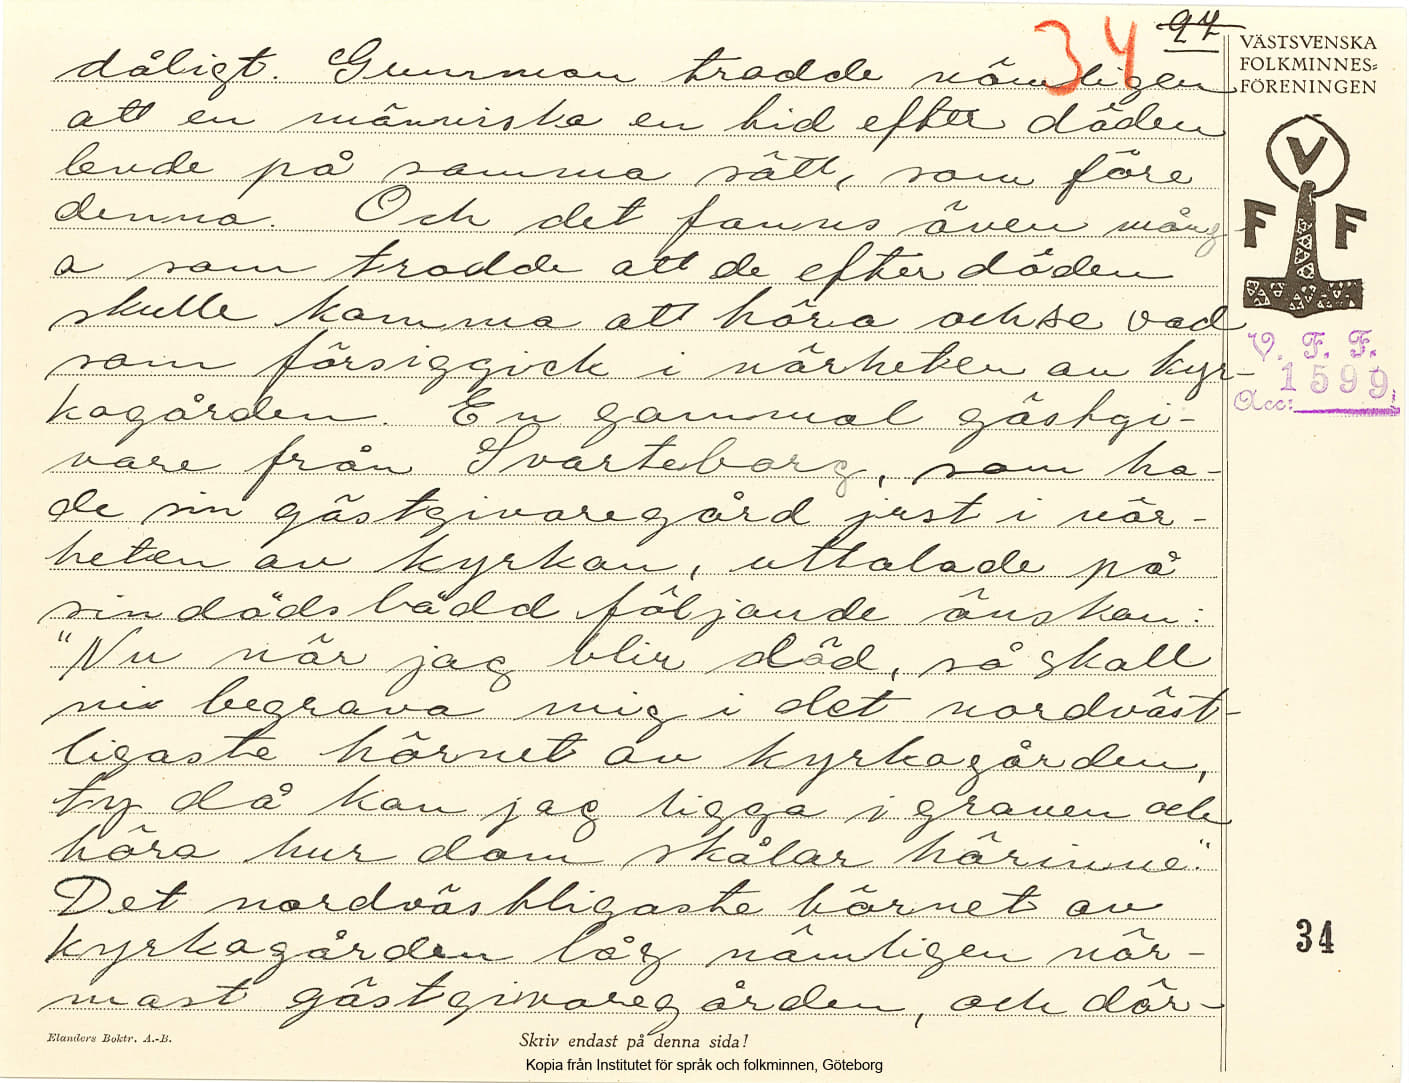 34 97
VÄSTSVENSKA
FOLKMINNES=
FÖRENINGEN
V
F F
V. F. F.
Acc: 1599
dåligt. Gumman trodde nämligen
att en människa en tid efter döden
levde på samma sätt, som före
denna. Och det fanns även mång
a som trodde att de efter döden
skulle komma att höra och se vad
som försiggick i närheten av kyr-
kogården. En gammal gästgi-
vare från Svarteborg, som ha-
de sin gästgivaregård just i när-
heten av kyrkan, uttalade på
sin dödsbädd följande önskan:
"Nu när jag blir död, så skall
ni begrava mig i det nordväst-
ligaste hörnet av kyrkogården,
ty då kan jag ligga i graven och
höra hur dom skålar härinne".
Det nordvästligaste hörnet av
kyrkogården låg nämligen när-
mast gästgivaregården, och där-
34
Elanders Boktr. A.-B.
Skriv endast på denna sida!
Kopia från Institutet för språk och folkminnen, Göteborg